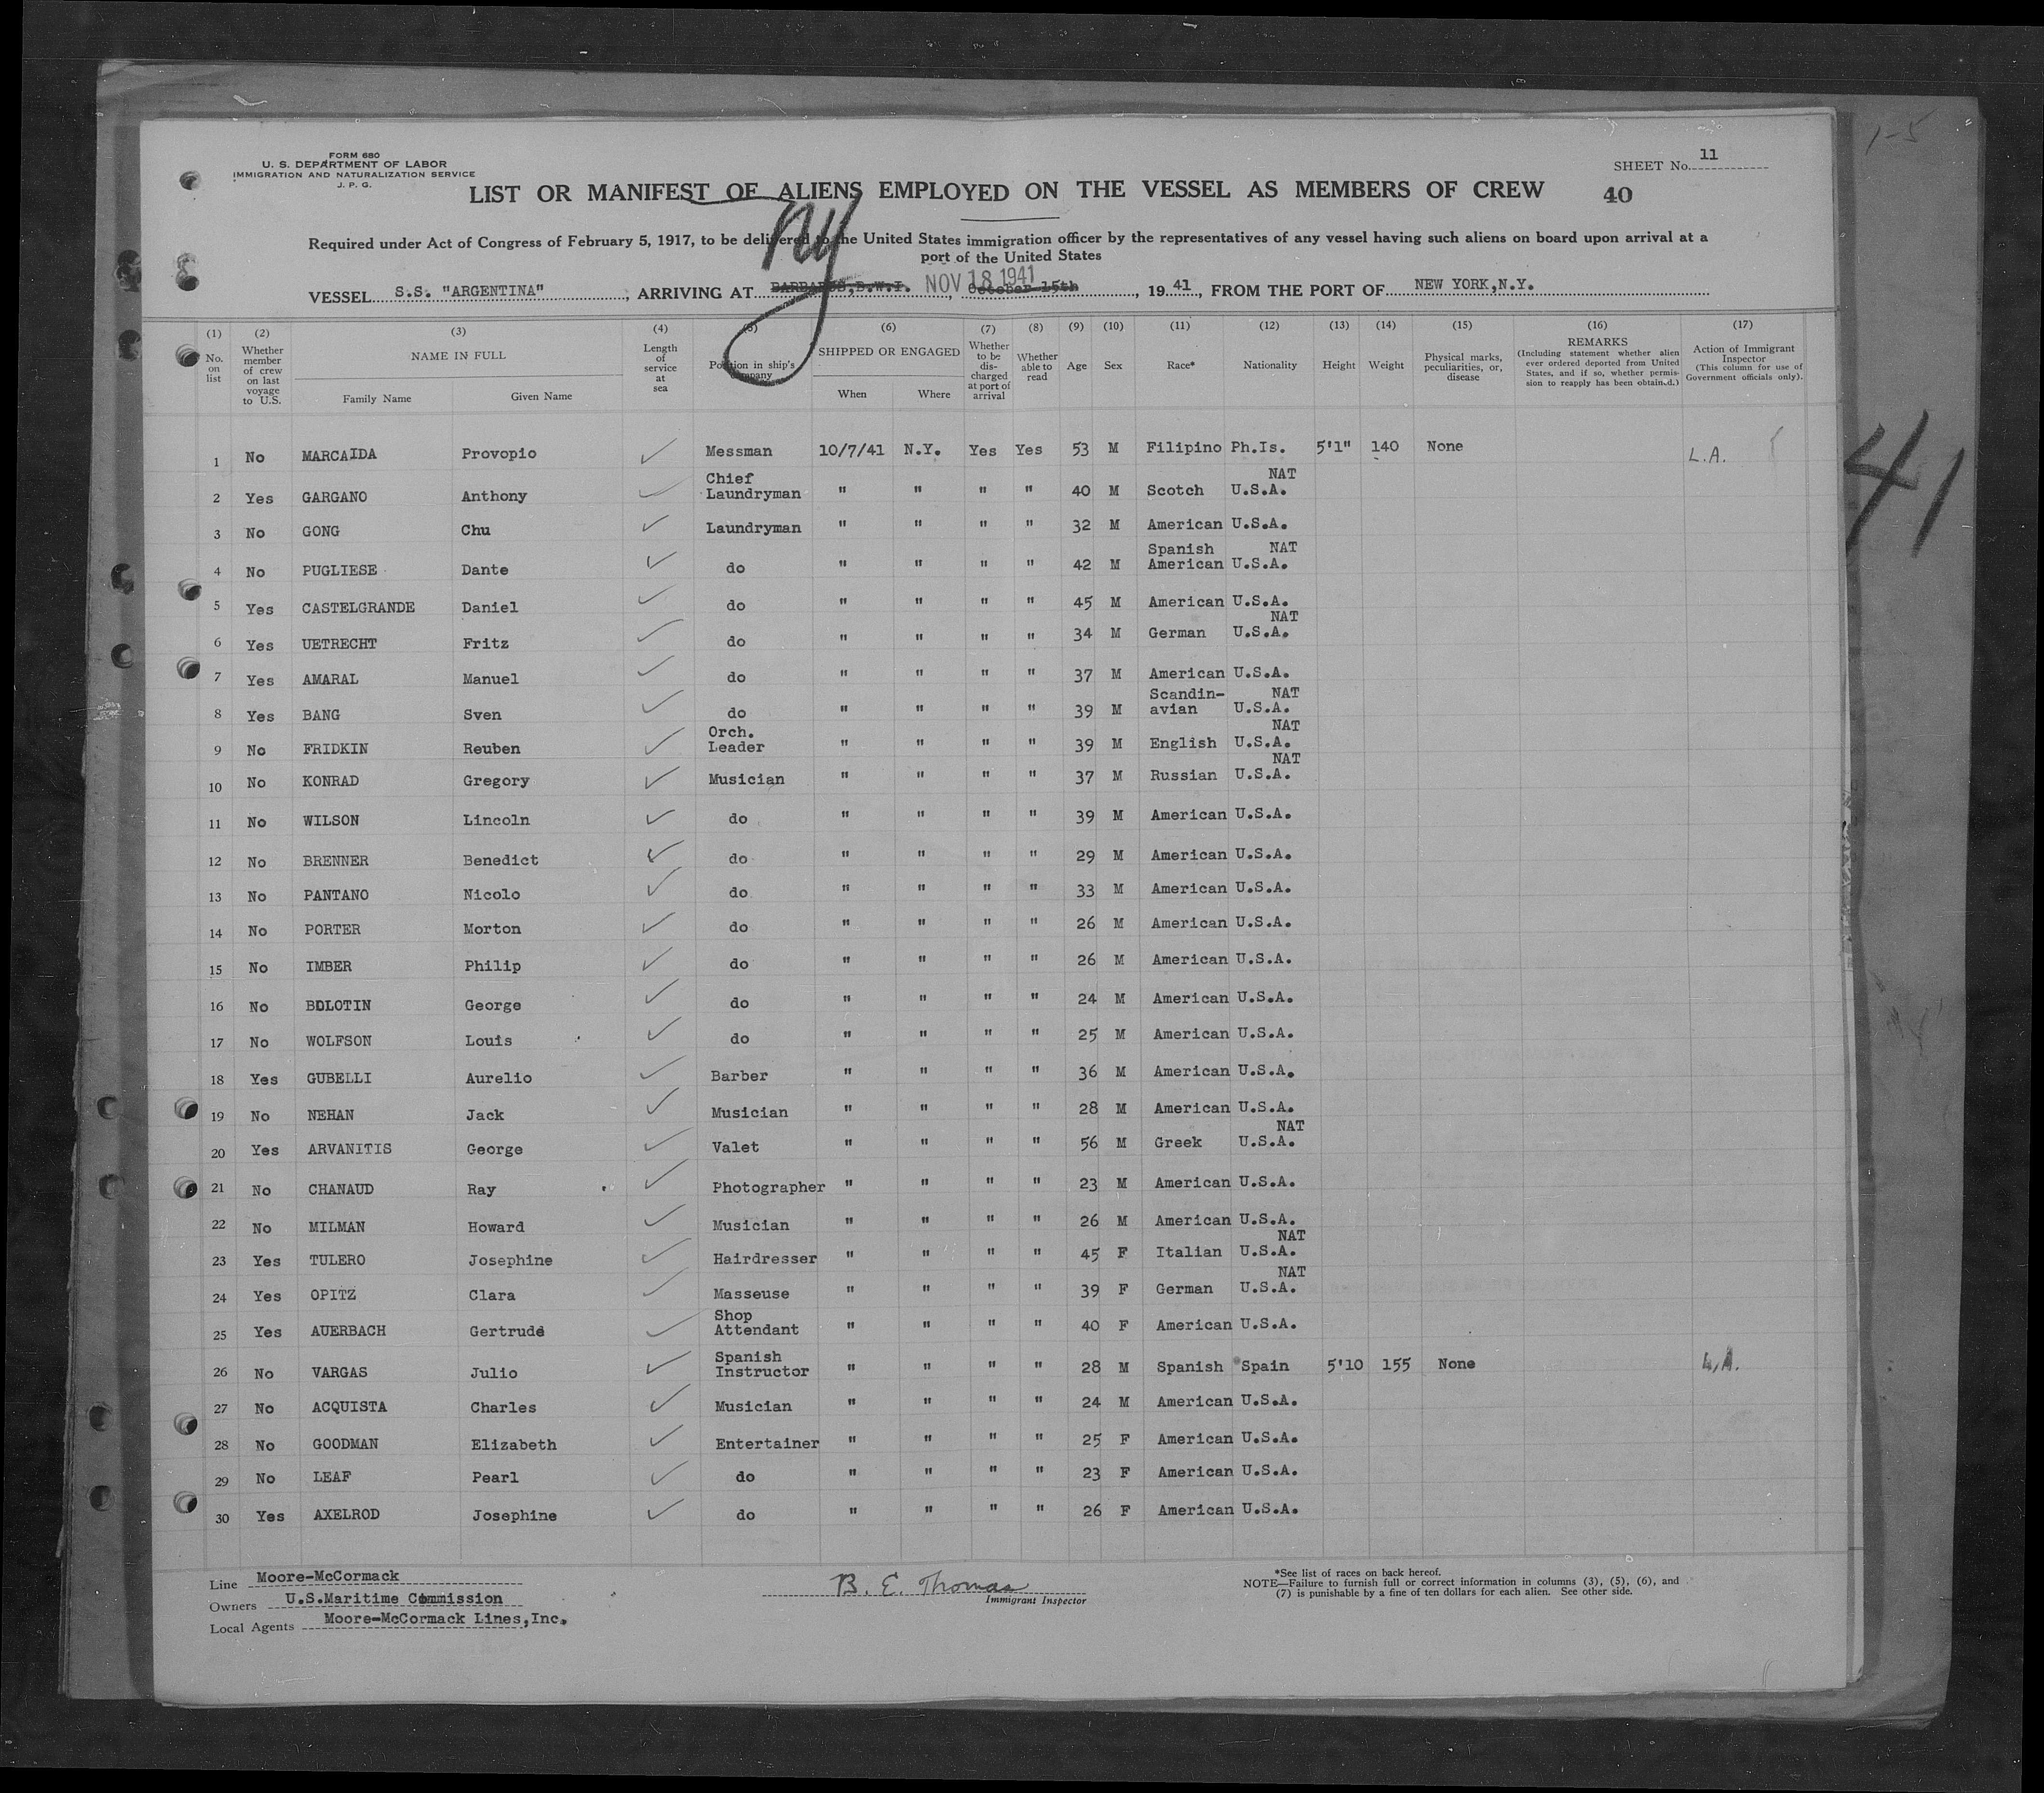 FORM 680
U. S. DEPARTMENT OF LABOR
IMMIGRATION AND NATURALIZATION SERVICE
J. P. G.
SHEET No. 11
LIST OR MANIFEST OF ALIENS EMPLOYED ON THE VESSEL AS MEMBERS OF CREW
40
1-5
ny
Required under Act of Congress of February 5, 1917, to be delivered to the United States immigration officer by the representatives of any vessel having such aliens on board upon arrival at a
port of the United States
VESSEL S.S. "ARGENTINA", ARRIVING AT BARBADOS,B.W.I. NOV 18 1941, October 15th, 19 41, FROM THE PORT OF NEW YORK,N.Y.
(1) No. on list
(2) Whether member of crew on last voyage to U.S.
(3) NAME IN FULL
Family Name Given Name
(4) Length of service at sea
(5) Position in ship's company
(6) SHIPPED OR ENGAGED
When Where
(7) Whether to be discharged at port of arrival
(8) Whether able to read
(9) Age
(10) Sex
(11) Race*
(12) Nationality
(13) Height
(14) Weight
(15) Physical marks, peculiarities, or, disease
(16) REMARKS (Including statement whether alien ever ordered deported from United States, and if so, whether permission to reapply has been obtained.)
(17) Action of Immigrant Inspector (This column for use of Government officials only).
41
1 No MARCAIDA Provopio ✓ Messman 10/7/41 N.Y. Yes Yes 53 M Filipino Ph.Is. 5'1" 140 None L.A.
2 Yes GARGANO Anthony ✓ Chief Laundryman " " " " 40 M Scotch NAT U.S.A.
3 No GONG Chu ✓ Laundryman " " " " 32 M American U.S.A.
4 No PUGLIESE Dante ✓ do " " " " 42 M Spanish American NAT U.S.A.
5 Yes CASTELGRANDE Daniel ✓ do " " " " 45 M American U.S.A.
6 Yes UETRECHT Fritz ✓ do " " " " 34 M German NAT U.S.A.
7 Yes AMARAL Manuel ✓ do " " " " 37 M American U.S.A.
8 Yes BANG Sven ✓ do " " " " 39 M Scandin-avian NAT U.S.A.
9 No FRIDKIN Reuben ✓ Orch. Leader " " " " 39 M English NAT U.S.A.
10 No KONRAD Gregory ✓ Musician " " " " 37 M Russian NAT U.S.A.
11 No WILSON Lincoln ✓ do " " " " 39 M American U.S.A.
12 No BRENNER Benedict ✓ do " " " " 29 M American U.S.A.
13 No PANTANO Nicolo ✓ do " " " " 33 M American U.S.A.
14 No PORTER Morton ✓ do " " " " 26 M American U.S.A.
15 No IMBER Philip ✓ do " " " " 26 M American U.S.A.
16 No BOLOTIN George ✓ do " " " " 24 M American U.S.A.
17 No WOLFSON Louis ✓ do " " " " 25 M American U.S.A.
18 Yes GUBELLI Aurelio ✓ Barber " " " " 36 M American U.S.A.
19 No NEHAN Jack ✓ Musician " " " " 28 M American U.S.A.
20 Yes ARVANITIS George ✓ Valet " " " " 56 M Greek NAT U.S.A.
21 No CHANAUD Ray ✓ Photographer " " " " 23 M American U.S.A.
22 No MILMAN Howard ✓ Musician " " " " 26 M American U.S.A.
23 Yes TULERO Josephine ✓ Hairdresser " " " " 45 F Italian NAT U.S.A.
24 Yes OPITZ Clara ✓ Masseuse " " " " 39 F German NAT U.S.A.
25 Yes AUERBACH Gertrude ✓ Shop Attendant " " " " 40 F American U.S.A.
26 No VARGAS Julio ✓ Spanish Instructor " " " " 28 M Spanish Spain 5'10 155 None L.A.
27 No ACQUISTA Charles ✓ Musician " " " " 24 M American U.S.A.
28 No GOODMAN Elizabeth ✓ Entertainer " " " " 25 F American U.S.A.
29 No LEAF Pearl ✓ do " " " " 23 F American U.S.A.
30 Yes AXELROD Josephine ✓ do " " " " 26 F American U.S.A.
Line Moore-McCormack
Owners U.S.Maritime Commission
Local Agents Moore-McCormack Lines,Inc.
B. E. Thomas
Immigrant Inspector
*See list of races on back hereof.
NOTE—Failure to furnish full or correct information in columns (3), (5), (6), and
(7) is punishable by a fine of ten dollars for each alien. See other side.